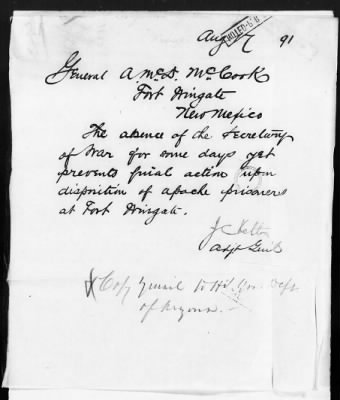 Aug 7 91
General A. McD. McCook
Fort Wingate
New Mexico
The absence of the Secretary
of War for some days yet
prevents final action upon
disposition of apache prisoners
at Fort Wingate.
J C Kelton
Adjt Genl
Copy Dept
of Arizona.